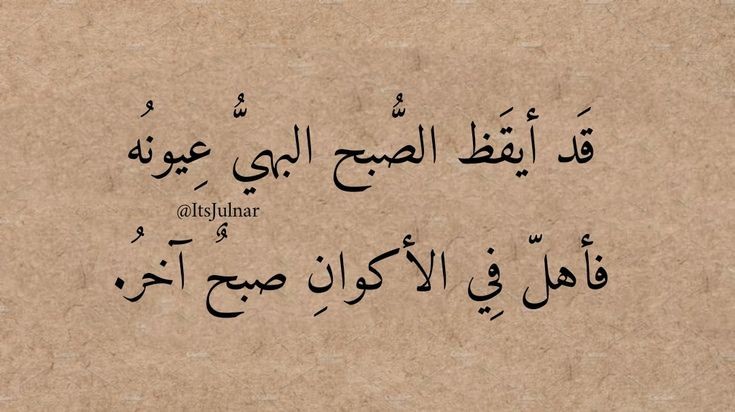 قَد أيقَظ الصُّبح البهيُّ عِيونُه
@ItsJulnar
فأهلّ فِي الأكوانِ صبحٌ آخرُ.